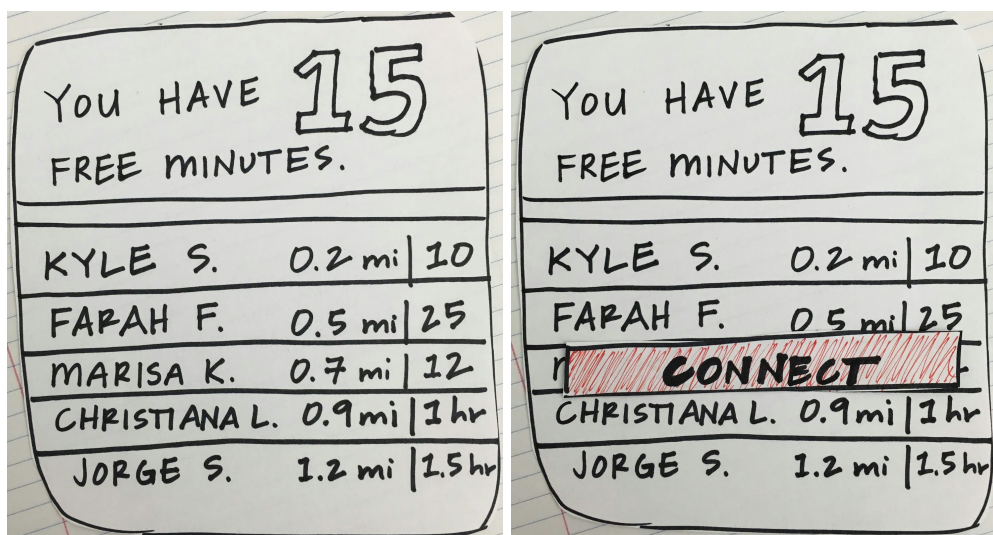 YOU HAVE 15
FREE MINUTES.
KYLE S. 0.2 mi | 10
FARAH F. 0.5 mi | 25
MARISA K. 0.7 mi | 12
CHRISTIANA L. 0.9 mi | 1 hr
JORGE S. 1.2 mi | 1.5 hr
YOU HAVE 15
FREE MINUTES.
KYLE S. 0.2 mi | 10
FARAH F. 0 5 mi | 25
CONNECT
CHRISTIANA L. 0.9 mi | 1 hr
JORGE S. 1.2 mi | 1.5 hr